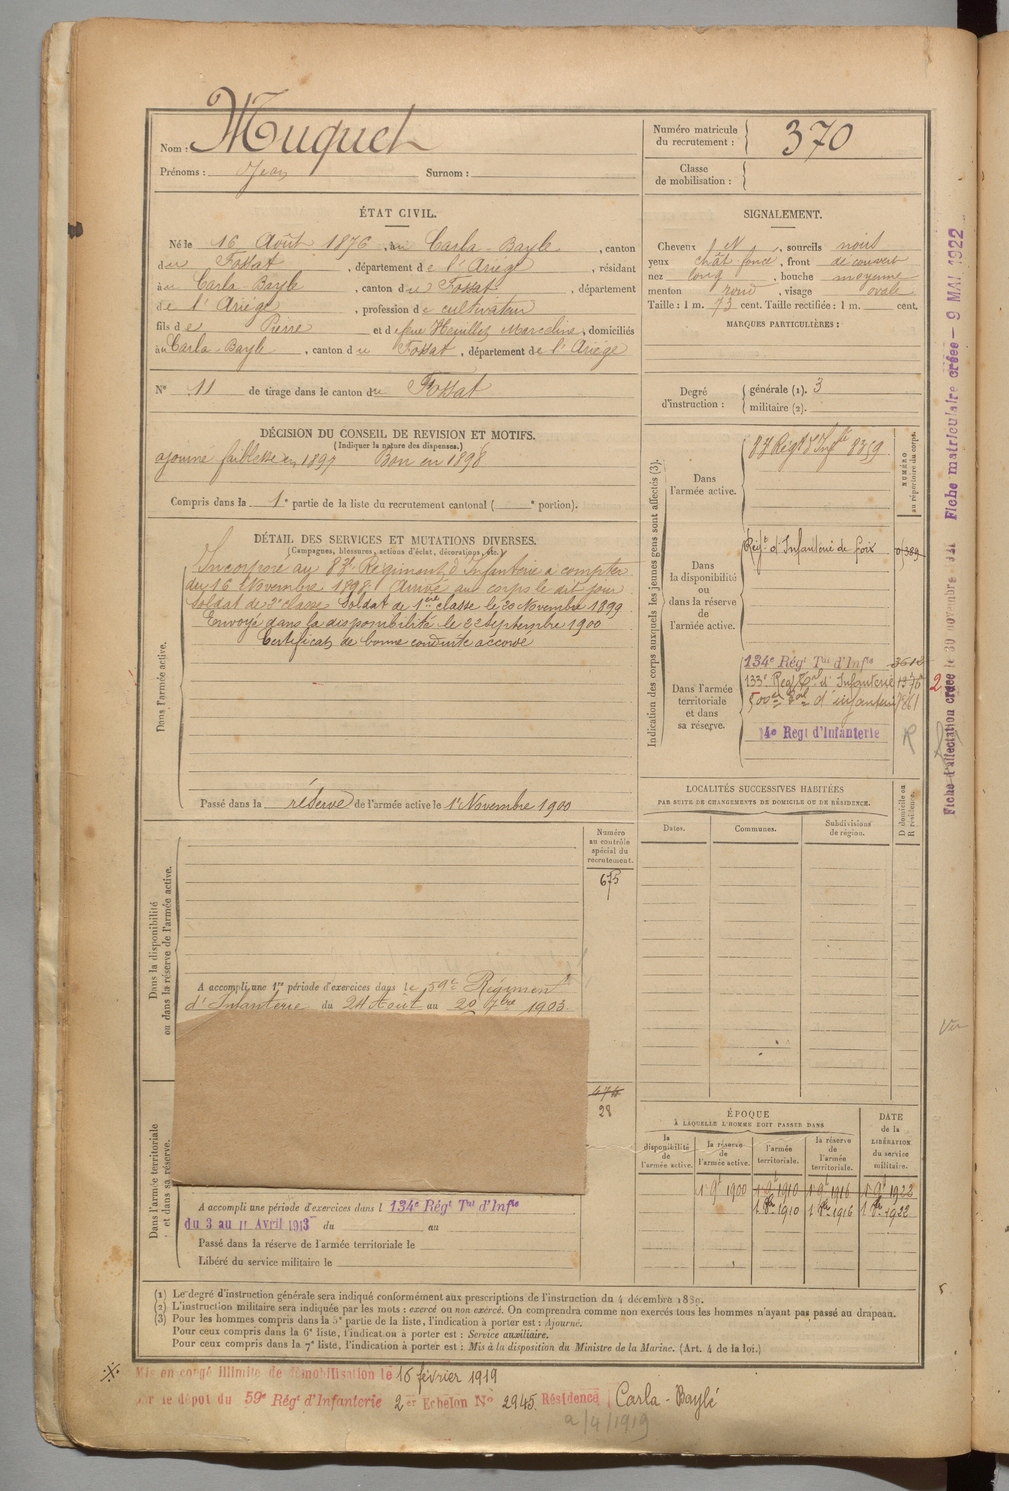 Nom : Muquet
Prénoms : Jean Surnom :
Numéro matricule
du recrutement : 370
Classe
de mobilisation :
ÉTAT CIVIL.
Né le 16 Août 1876, au Carla-Bayle, canton
du Fossat, département de l'Ariège, résidant
au Carla-Bayle, canton du Fossat, département
de l'Ariège, profession de cultivateur
fils de Pierre et de feue Heuillet Marceline, domiciliés
au Carla-Bayle, canton du Fossat, département de l'Ariège
N° 11 de tirage dans le canton du Fossat
SIGNALEMENT.
Cheveux N, sourcils noirs
yeux chât foncé, front découvert
nez long, bouche moyenne
menton rond, visage ovale
Taille : 1 m. 73 cent. Taille rectifiée : 1 m. cent.
MARQUES PARTICULIÈRES :
Degré
d'instruction :
générale (1). 3
militaire (2).
DÉCISION DU CONSEIL DE REVISION ET MOTIFS.
(Indiquer la nature des dispenses.)
ajourné faiblesse en 1897 Bon en 1898
Compris dans la 1e partie de la liste du recrutement cantonal ( e portion).
DÉTAIL DES SERVICES ET MUTATIONS DIVERSES.
(Campagnes, blessures, actions d'éclat, décorations, etc.)
Dans l'armée active.
Incorporé au 83e Régiment d'Infanterie à compter
du 16 Novembre 1898. Arrivé au corps le dit jour
soldat de 2e classe Soldat de 1ère classe le 30 Novembre 1899
Envoyé dans la disponibilité le 22 Septembre 1900
Certificat de bonne conduite accordé
Passé dans la réserve de l'armée active le 1er Novembre 1900
Indication des corps auxquels les jeunes gens sont affectés (3).
NUMÉRO
au répertoire du corps.
Dans
l'armée active.
83 Régt d'Infie 8359
Dans
la disponibilité
ou
dans la réserve
de
l'armée active.
Régt d'Infanterie de Foix 0/389
Dans l'armée
territoriale
et dans
sa réserve.
134e Régt Tal d'Infie 3612
133e Régt Tal d'Infanterie
500e Tal d'infanterie
14e Regt d'Infanterie
R
2
LOCALITÉS SUCCESSIVES HABITÉES
PAR SUITE DE CHANGEMENTS DE DOMICILE OU DE RÉSIDENCE.
Dates. Communes. Subdivisions
de région.
D domicile ou
R résidence.
Dans la disponibilité
ou dans la réserve de l'armée active.
Numéro
au contrôle
spécial du
recrutement.
675
A accompli une 1re période d'exercices dans le 59e Régiment
d'Infanterie du 24 Août au 20 7bre 1903.
474
28
Dans l'armée territoriale
et dans sa réserve.
A accompli une période d'exercices dans l 134e Régt Tal d'Infie
du 3 au 11 Avril 1913 du au
Passé dans la réserve de l'armée territoriale le
Libéré du service militaire le
ÉPOQUE
À LAQUELLE L'HOMME DOIT PASSER DANS
DATE
de la
LIBÉRATION
du service
militaire.
la
disponibilité
de
l'armée active.
la réserve
de
l'armée active.
l'armée
territoriale.
la réserve
de
l'armée
territoriale.
1 9e 1900 1 9e 1910 1 9e 1916 1 9e 1922
1 8bre 1910 1 8bre 1916 1 8bre 1922
(1) Le degré d'instruction générale sera indiqué conformément aux prescriptions de l'instruction du 4 décembre 1889.
(2) L'instruction militaire sera indiquée par les mots : exercé ou non exercé. On comprendra comme non exercés tous les hommes n'ayant pas passé au drapeau.
(3) Pour les hommes compris dans la 5e partie de la liste, l'indication à porter est : Ajourné.
Pour ceux compris dans la 6e liste, l'indication à porter est : Service auxiliaire.
Pour ceux compris dans la 7e liste, l'indication à porter est : Mis à la disposition du Ministre de la Marine. (Art. 4 de la loi.)
Mis en congé illimité de démobilisation le 16 février 1919
par le dépot du 59e Régt d'Infanterie 2er Echelon N° 2945 Résidence Carla-Baylé
2/4/1919
Fiche d'affectation créée le 30 novembre Fiche matriculaire créée - 9 MAI 1922
Vu